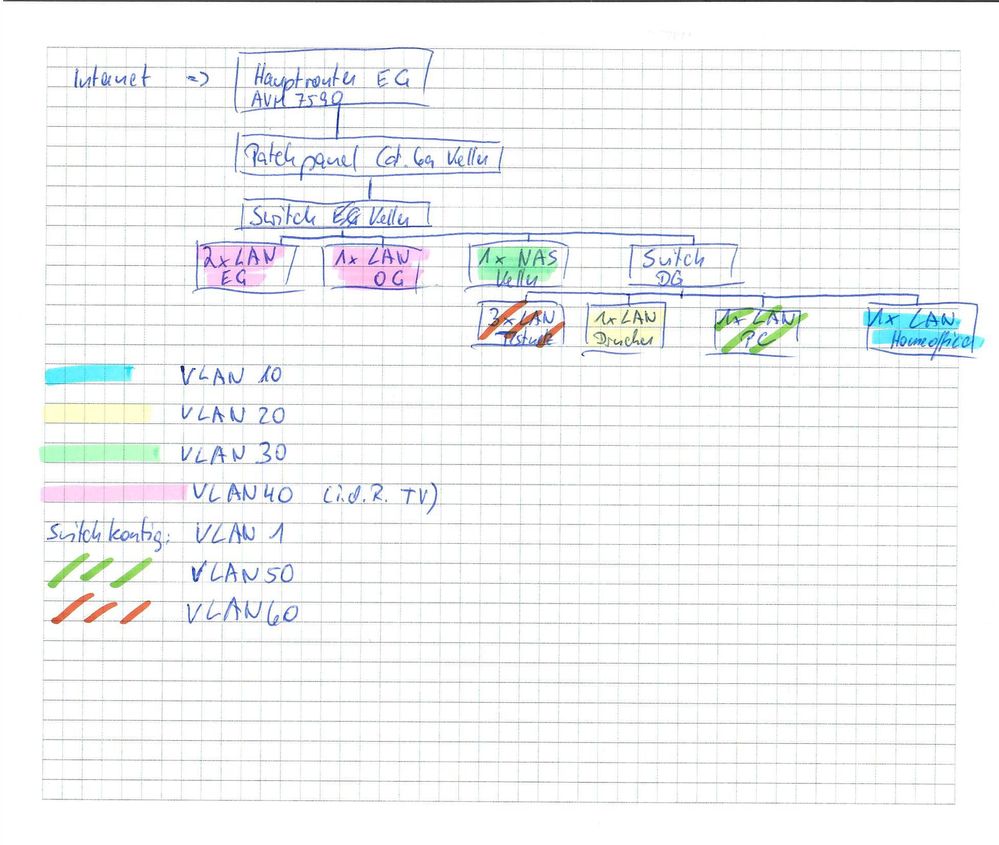 Internet => Hauptrouter EG
AVM 7590
Patchpanel Cat. 6a Keller
Switch Keller
2x LAN
EG
1x LAN
OG
1x NAS
Keller
Switch
DG
3x LAN
1x LAN
Drucker
1x LAN
PC
1x LAN
Homeoffice
VLAN 10
VLAN 20
VLAN 30
VLAN 40 (i.d.R. TV)
Switchkonfig: VLAN 1
VLAN 50
VLAN 60